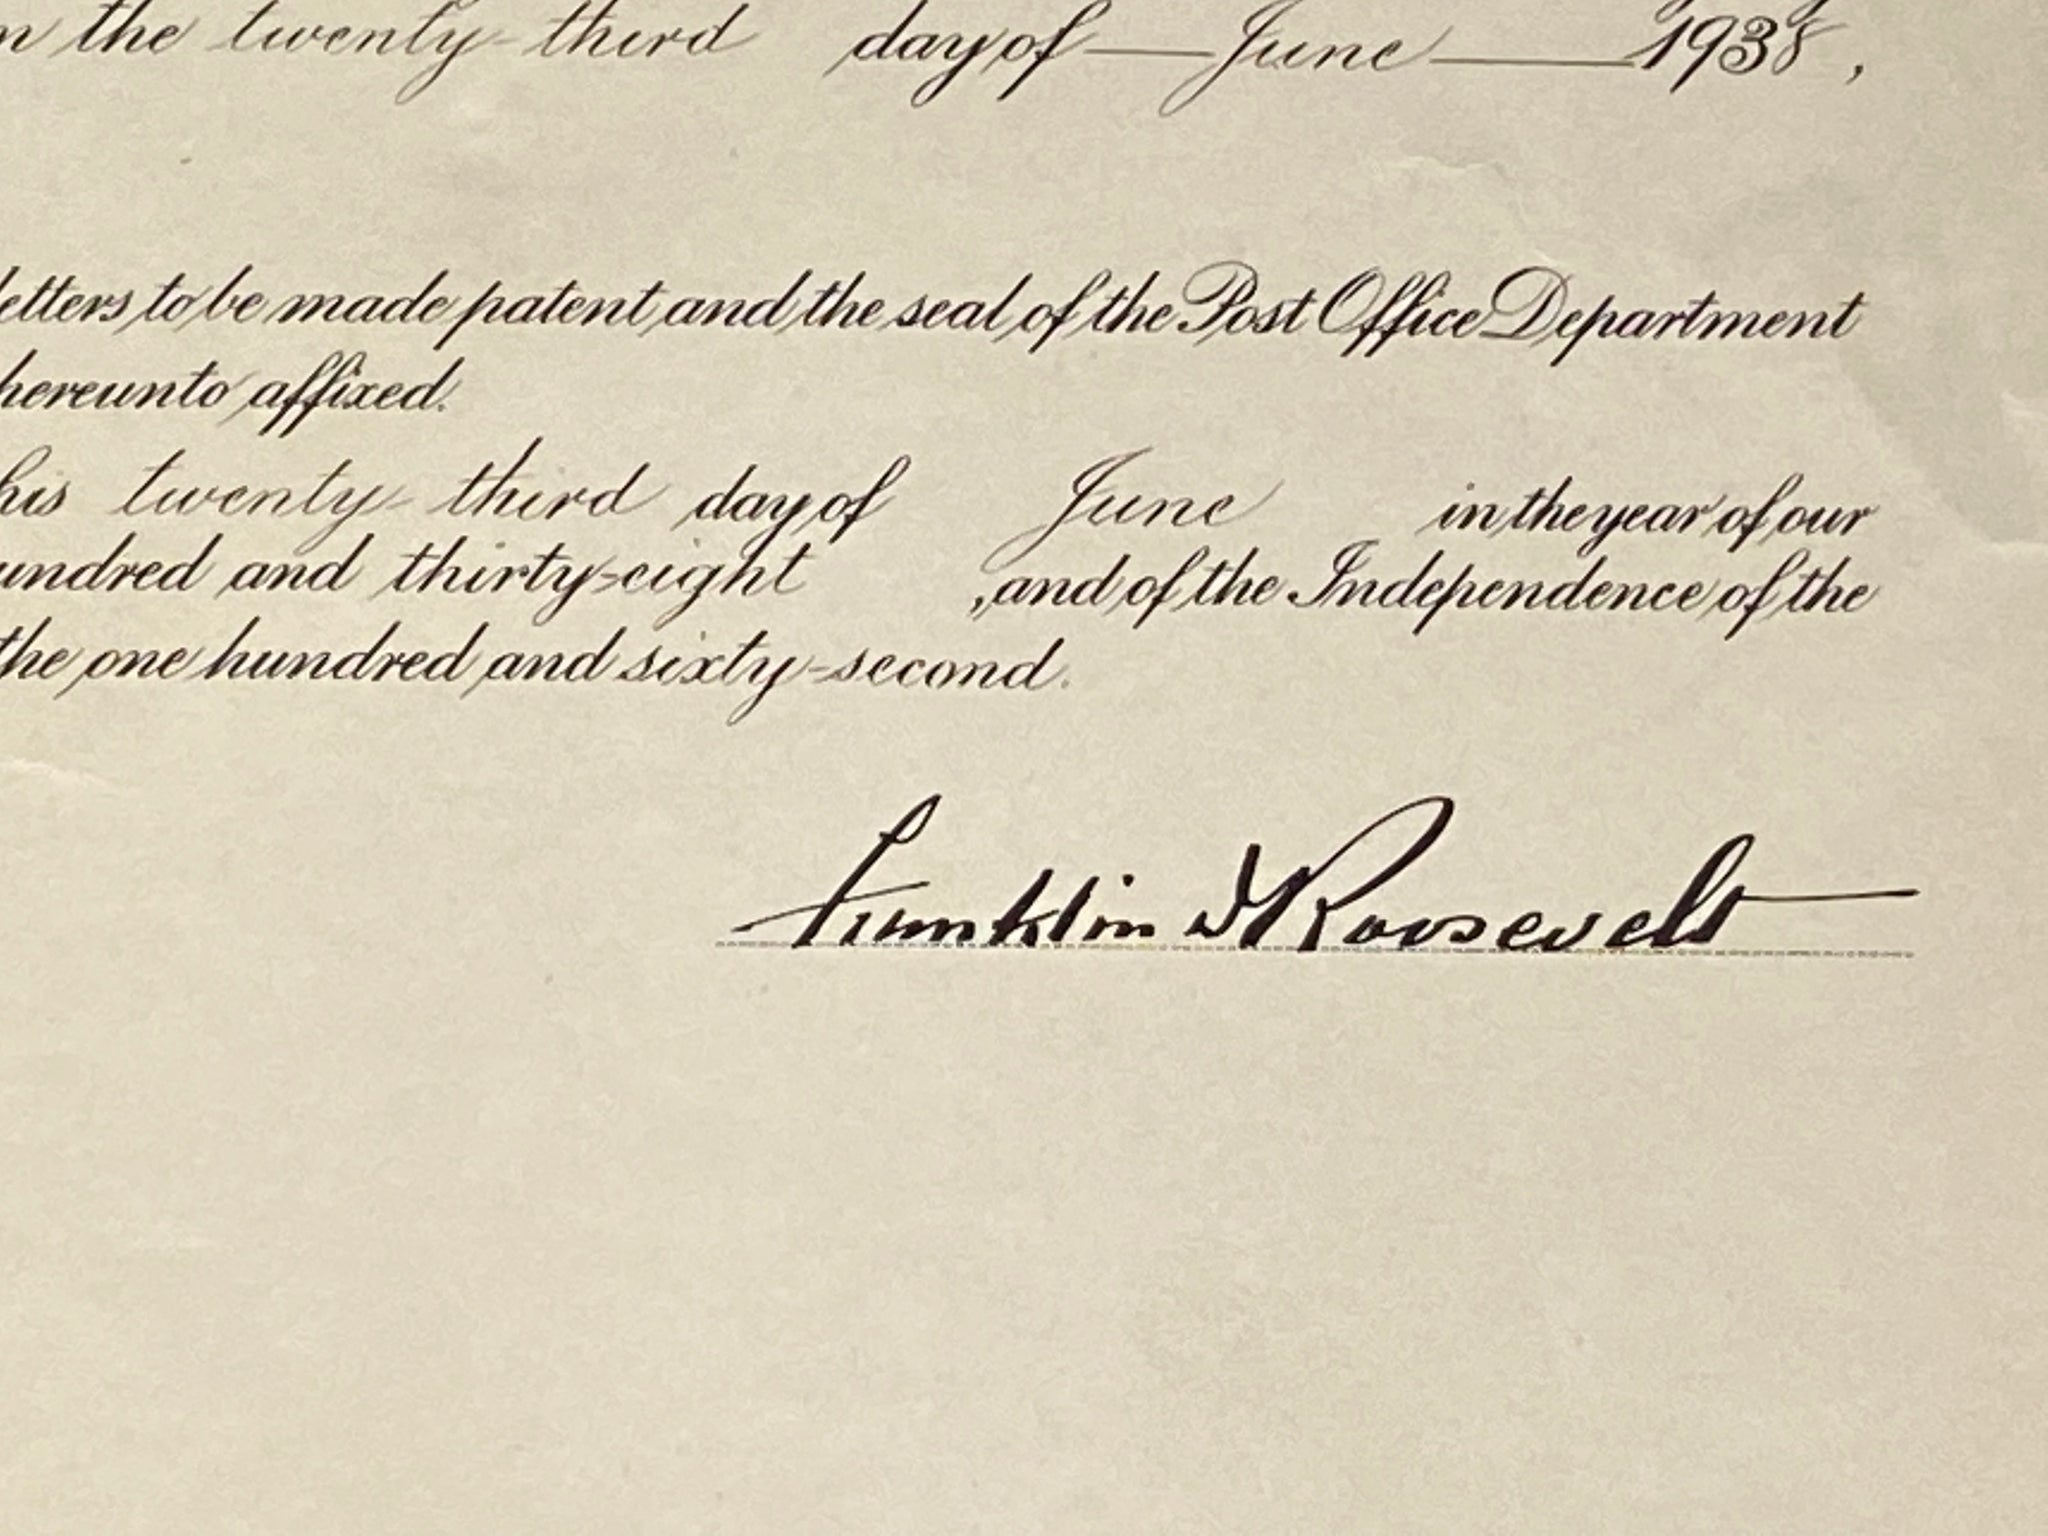 n the twenty-third day of June 1938,
letters to be made patent and the seal of the Post Office Department
hereunto affixed.
his twenty-third day of June in the year of our
undred and thirty-eight , and of the Independence of the
the one hundred and sixty-second.
Franklin D Roosevelt